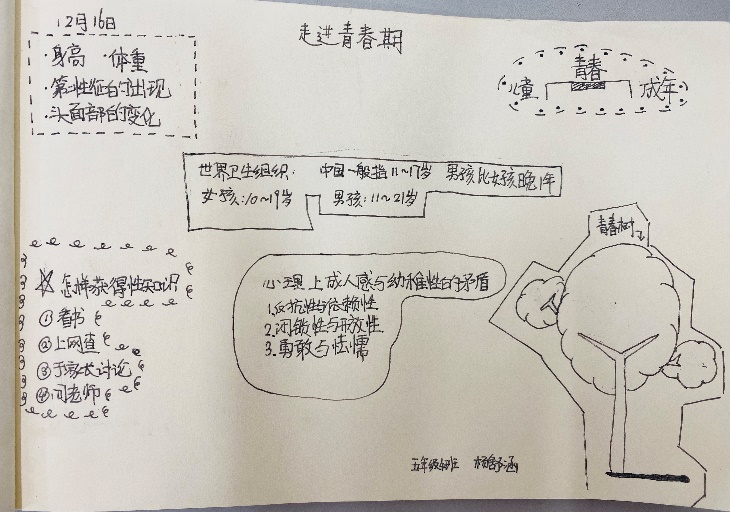 12月16日
走进青春期
·身高 ·体重
·第二性征的出现
·头面部的变化
青春
儿童 成年
世界卫生组织: 中国一般指11~17岁 男孩比女孩晚1年
女孩:10~19岁 男孩:11~21岁
青春树
☆怎样获得性知识
①看书
②上网查
③于家长讨论
④问老师
心理上成人感与幼稚性的矛盾
1.反抗性与依赖性
2.闭锁性与开放性
3.勇敢与怯懦
五年级 班 杨舒涵